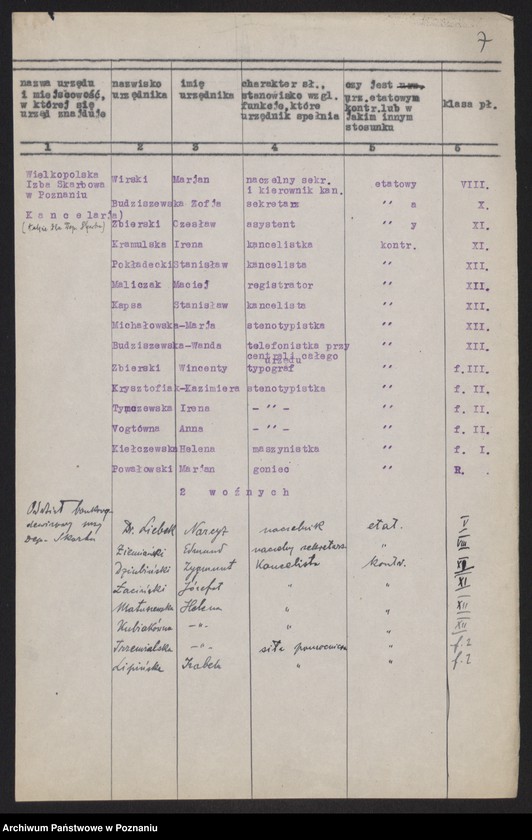 7
nazwa urzędu i miejscowość, w której się urząd znajduje | nazwisko urzędnika | imię urzędnika | charakter sł., stanowisko wzgl. funkcje, które urzędnik spełnia | czy jest urz. etatowym kontr. lub w jakim innym stosunku | klasa pł.
1 2 3 4 5 6
Wielkopolska Izba Skarbowa w Poznaniu
Wirski Marjan naczelny sekr. i kierownik kan. etatowy VIII.
Kancelarja)
Budziszewska Zofja sekretarz '' a X.
Zbierski Czesław asystent '' y XI.
Kramulska Irena kancelistka kontr. XI.
Pokładecki Stanisław kancelista '' XII.
Maliczak Maciej registrator '' XII.
Kapsa Stanisław kancelista '' XII.
Michałowska-Marja stenotypistka '' XII.
Budziszewska-Wanda telefonistka przy centrali całego urzędu '' XII.
Zbierski Wincenty typograf '' f.III.
Krysztofiak-Kazimiera stenotypistka '' f. II.
Tymczewska Irena - '' - '' f. II.
Vogtówna Anna - '' - '' f. II.
Kiełczewska Helena maszynistka '' f. I.
Powałowski Marjan goniec '' R.
2 woźnych
Oddział
Dep. Skarbu
Dr. Liebek Narcyz naczelnik etat. V
Ziemiański Edmund naczelny sekretarz " VIII
Dziubiński Zygmunt Kancelista kontr.
Łaciński Józef " " XI
Matuszewska Helena " " XII
Kubiakówna -"- " XII
Trzemialska -"- siła pomocnicza " f. 2
Lipińska Izabela " " f. 2
Archiwum Państwowe w Poznaniu